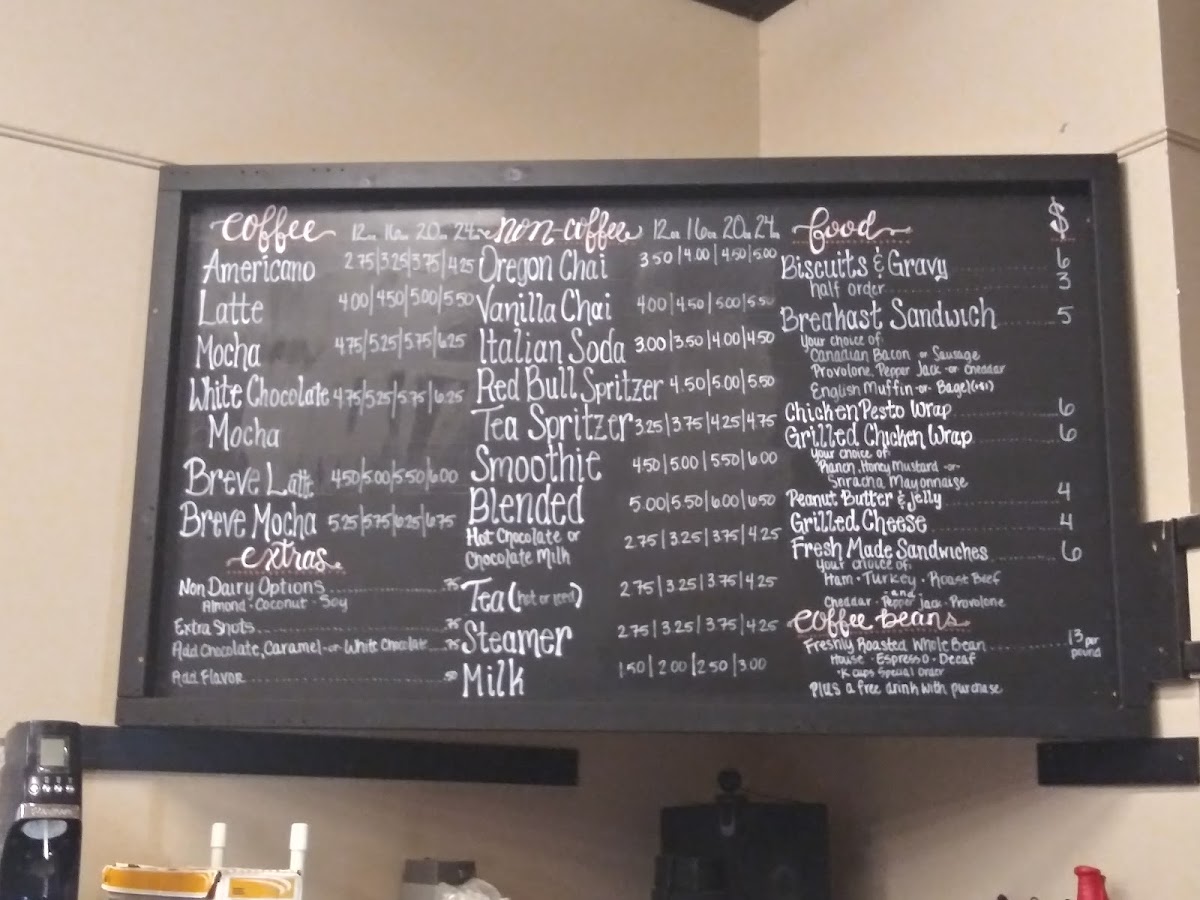 coffee 12oz 16oz 20oz 24oz
Americano 2.75|3.25|3.75|4.25
Latte 4.00|4.50|5.00|5.50
Mocha 4.75|5.25|5.75|6.25
White Chocolate 4.75|5.25|5.75|6.25
Mocha
Breve Latte 4.50|5.00|5.50|6.00
Breve Mocha 5.25|5.75|6.25|6.75
extras
Non Dairy Options .75
Almond · Coconut · Soy
Extra Shots .75
Add Chocolate, Caramel -or- White Chocolate .75
Add Flavor .50
non-coffee 12oz 16oz 20oz 24oz
Oregon Chai 3.50|4.00|4.50|5.00
Vanilla Chai 4.00|4.50|5.00|5.50
Italian Soda 3.00|3.50|4.00|4.50
Red Bull Spritzer 4.50|5.00|5.50
Tea Spritzer 3.25|3.75|4.25|4.75
Smoothie 4.50|5.00|5.50|6.00
Blended 5.00|5.50|6.00|6.50
Hot Chocolate or
Chocolate Milk 2.75|3.25|3.75|4.25
Tea (hot or iced) 2.75|3.25|3.75|4.25
Steamer 2.75|3.25|3.75|4.25
Milk 1.50|2.00|2.50|3.00
food $
Biscuits & Gravy 6
half order 3
Breakast Sandwich 5
your choice of:
Canadian Bacon or Sausage
Provolone, Pepper Jack -or- Cheddar
English Muffin -or- Bagel
Chicken Pesto Wrap 6
Grilled Chicken Wrap 6
your choice of:
Ranch, Honey Mustard -or-
Sriracha Mayonnaise
Peanut Butter & Jelly 4
Grilled Cheese 4
Fresh Made Sandwiches 6
your choice of:
Ham · Turkey · Roast Beef
-and-
Cheddar · Pepper Jack · Provolone
coffee beans
Freshly Roasted Whole Bean 13 per pound
House · Espresso · Decaf
*K cups Special Order
Plus a free drink with purchase